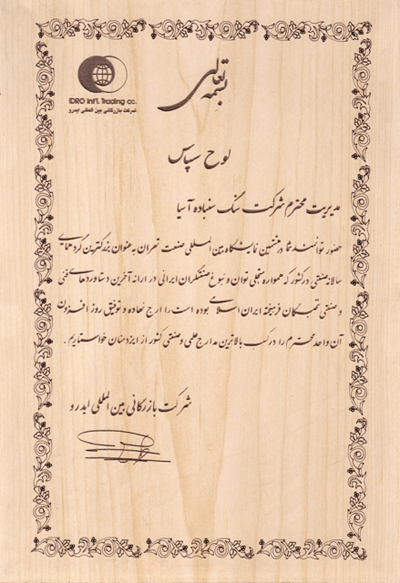 بسمه تعالی
IDRO Int'l. Trading co.
شرکت بازرگانی بین المللی ایدرو
لوح سپاس
مدیریت محترم شرکت سنگ سنباده آسیا
حضور توانمند شما در هشتمین نمایشگاه بین المللی صنعت تهران به عنوان بزرگترین گردهمایی
سالانه صنعتی در کشور که همواره تجلی توان و نبوغ صنعتگران ایرانی در ارائه آخرین دستاوردهای فنی
و صنعتی نخبگان فرهیخته ایران اسلامی بوده است را ارج نهاده و توفیق روز افزون
آن واحد محترم را در کسب بالاترین مدارج علمی و صنعتی کشور از ایزدمنان خواستاریم.
شرکت بازرگانی بین المللی ایدرو